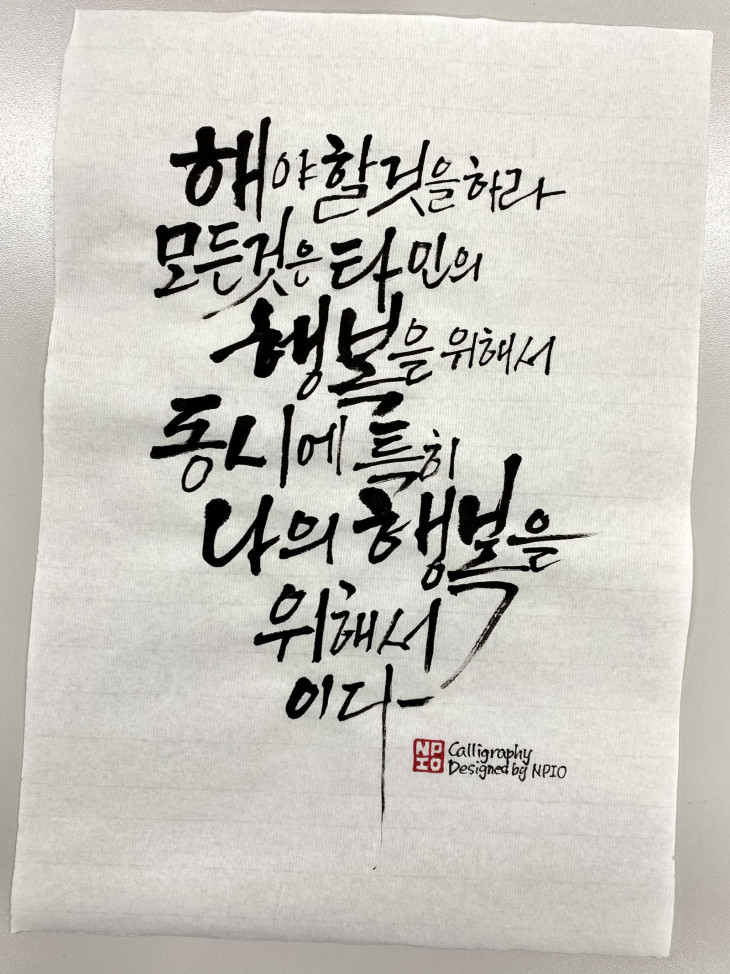 해야할것을하라
모든것은타인의
행복을위해서
동시에특히
나의행복을
위해서
이다
NP
IO
Calligraphy
Designed by NPIO